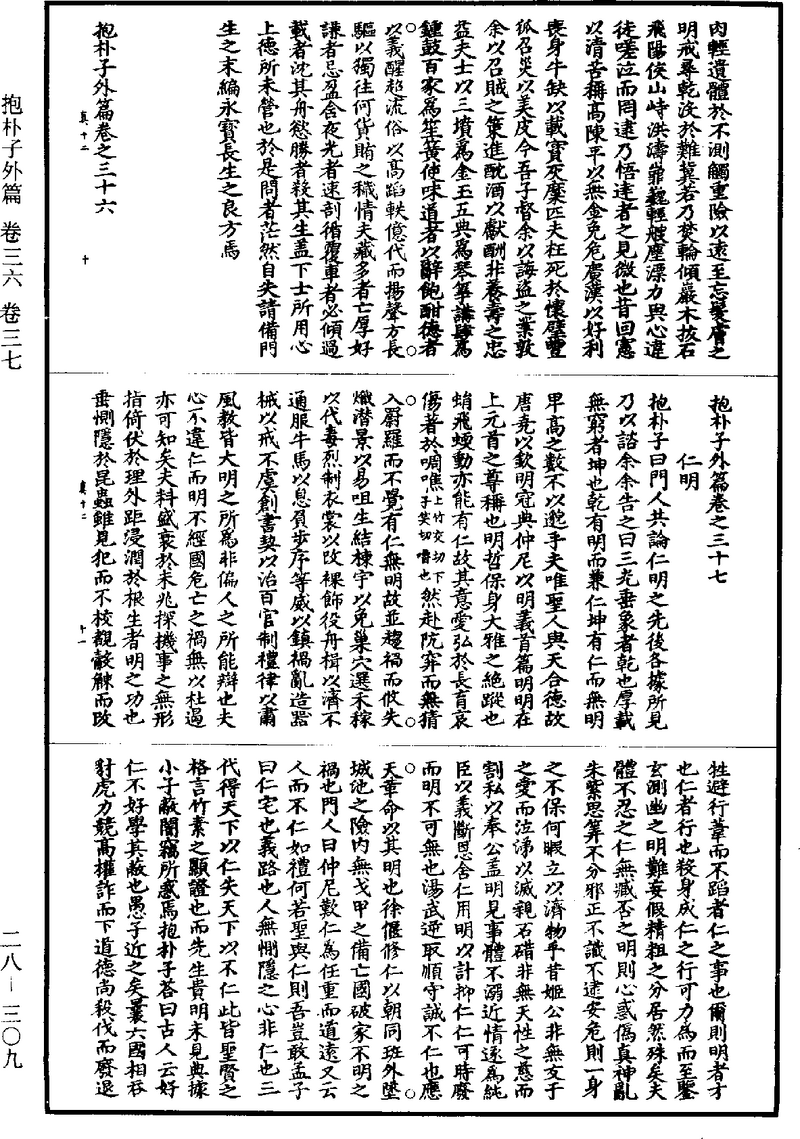 抱朴子外篇 卷三六 卷三七
二八—三〇九
肉輕遺體於不測觸重險以遠至忘髮膚之
明戒尋乾沒於難冀若乃焚輪傾巖木拔石
飛陽侯山峙洪濤嶵巍輕艘塵漂力與心違
徒嗟泣而罔逮乃悟達者之見微也昔回憲
以清苦稱高陳平以無金免危廣漢以好利
喪身牛缺以載寶灰糜匹夫枉死於懷璧豐
狐召災以美皮今吾子督余以誨盜之業敦
余以召賊之策進酖酒以獻酬非養壽之忠
益夫士以三墳為金玉五典為琴箏講肄為
鍾鼓百家為笙簧使味道者以辭飽酣德者
以義醒超流俗以高蹈軼億代而揚聲方長
驅以獨往何貨賄之穢情夫藏多者亡厚好
謙者忌盈含夜光者速剖循覆車者必傾過
載者沈其舟慾勝者殺其生蓋下士所用心
上德所未營也於是問者茫然自失請備門
生之末編永寶長生之良方焉
抱朴子外篇卷之三十六
真十二
十
抱朴子外篇卷之三十七
仁明
抱朴子曰門人共論仁明之先後各據所見
乃以諮余余告之曰三光垂象者乾也厚載
無窮者坤也乾有明而兼仁坤有仁而無明
卑高之數不以邈乎夫唯聖人與天合德故
唐堯以欽明冠典仲尼以明義首篇明明在
上元首之尊稱也明哲保身大雅之絕蹤也
蜎飛蝡動亦能有仁故其意愛弘於長育哀
傷著於啁噍上竹交切下子笑切嚼也然赴阬穽而無猜
入罻羅而不覺有仁無明故並趨禍而攸失
熾潜景以易咀生結棟宇以免巢穴選禾稼
以代毒烈制衣裳以改裸飾役舟楫以濟不
通服牛馬以息負步序等威以鎮禍亂造器
械以戒不虞創書契以治百官制禮律以肅
風教皆大明之所為非偏人之所能辯也夫
心不違仁而明不經國危亡之禍無以杜遏
亦可知矣夫料盛衰於未兆探機事之無形
指倚伏於理外距浸潤於根生者明之功也
垂惻隱於昆蟲雖見犯而不校覩觳觫而改
真十二
十一
牲避行葦而不蹈者仁之事也爾則明者才
也仁者行也殺身成仁之行可力為而至鑒
玄測幽之明難妄假精粗之分居然殊矣夫
體不忍之仁無臧否之明則心惑偽真神亂
朱紫思算不分邪正不識不逮安危則一身
之不保何暇立以濟物乎昔姬公非無友于
之愛而泣涕以滅親石碏非無天性之慈而
割私以奉公蓋明見事體不溺近情遂為純
臣以義斷恩舍仁用明以計抑仁仁可時廢
而明不可無也湯武逆取順守誠不仁也應
天革命以其明也徐偃修仁以朝同班外墜
城池之險內無戈甲之備亡國破家不明之
禍也門人曰仲尼歎仁為任重而道遠又云
人而不仁如禮何若聖與仁則吾豈敢孟子
曰仁宅也義路也人無惻隱之心非仁也三
代得天下以仁失天下以不仁此皆聖賢之
格言竹素之顯證也而先生貴明未見典據
小子蔽闇竊所惑焉抱朴子荅曰古人云好
仁不好學其蔽也愚子近之矣曩六國相吞
豺虎力競高權詐而下道德尚殺伐而廢退